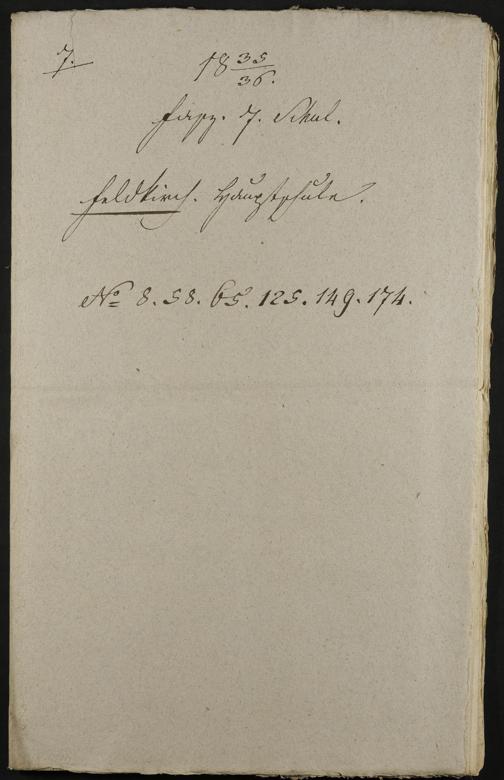 7.
18 35/36.
Fasz. 7. Schul.
Feldkirch. Hauptschule.
No 8. 58. 65. 125. 149. 174.